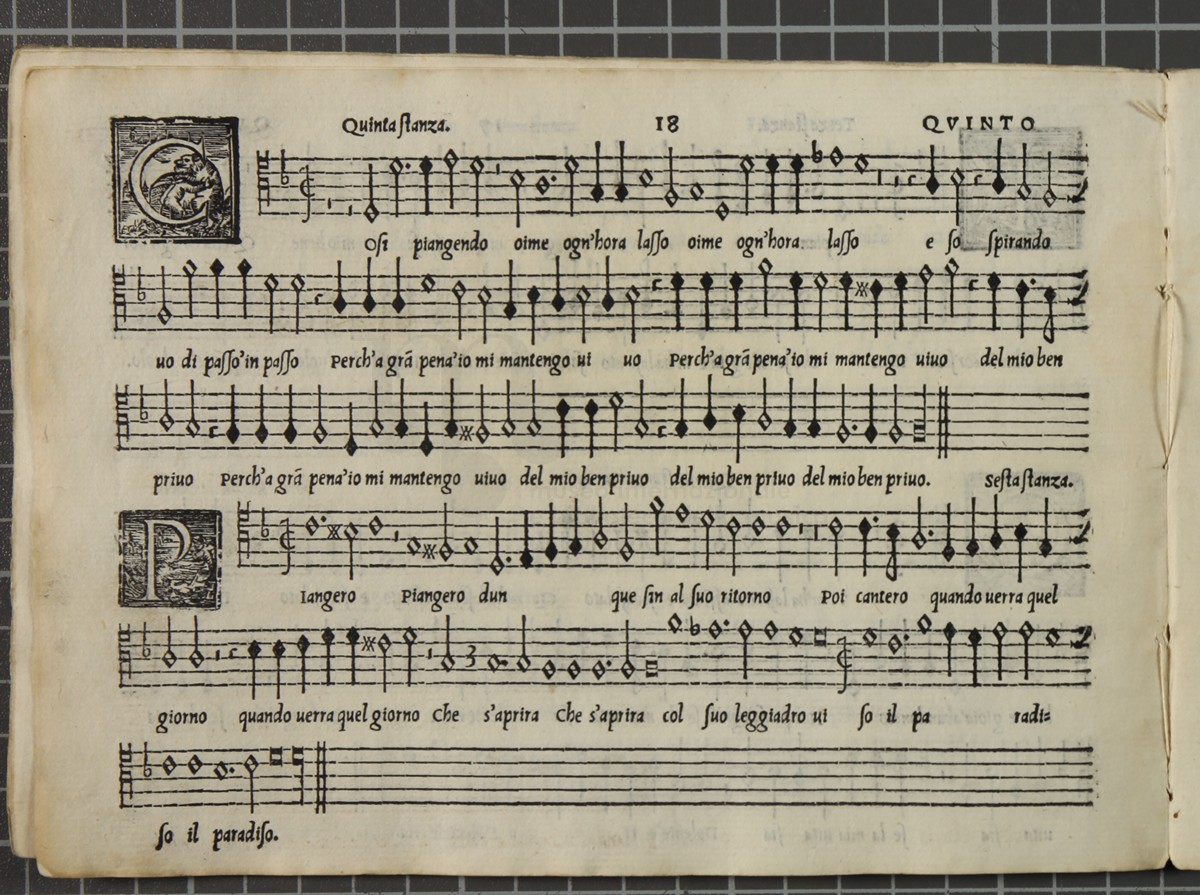 Quinta ſtanza. 18 QVINTO
COſi piangendo oime ogn'hora laſſo oime ogn'hora laſſo e ſo ſpirando
uo di paſſo'in paſſo Perch'a grã pena'io mi mantengo ui uo Perch'a grã pena'io mi mantengo uiuo del mio ben
priuo Perch'a grã pena'io mi mantengo uiuo del mio ben priuo del mio ben priuo del mio ben priuo. Seſta ſtanza.
PIangero Piangero dun que ſin al ſuo ritorno Poi cantero quando uerra quel
giorno quando uerra quel giorno Che s'aprira Che s'aprira col ſuo leggiadro ui ſo il pa radi=
3
ſo il paradiſo.